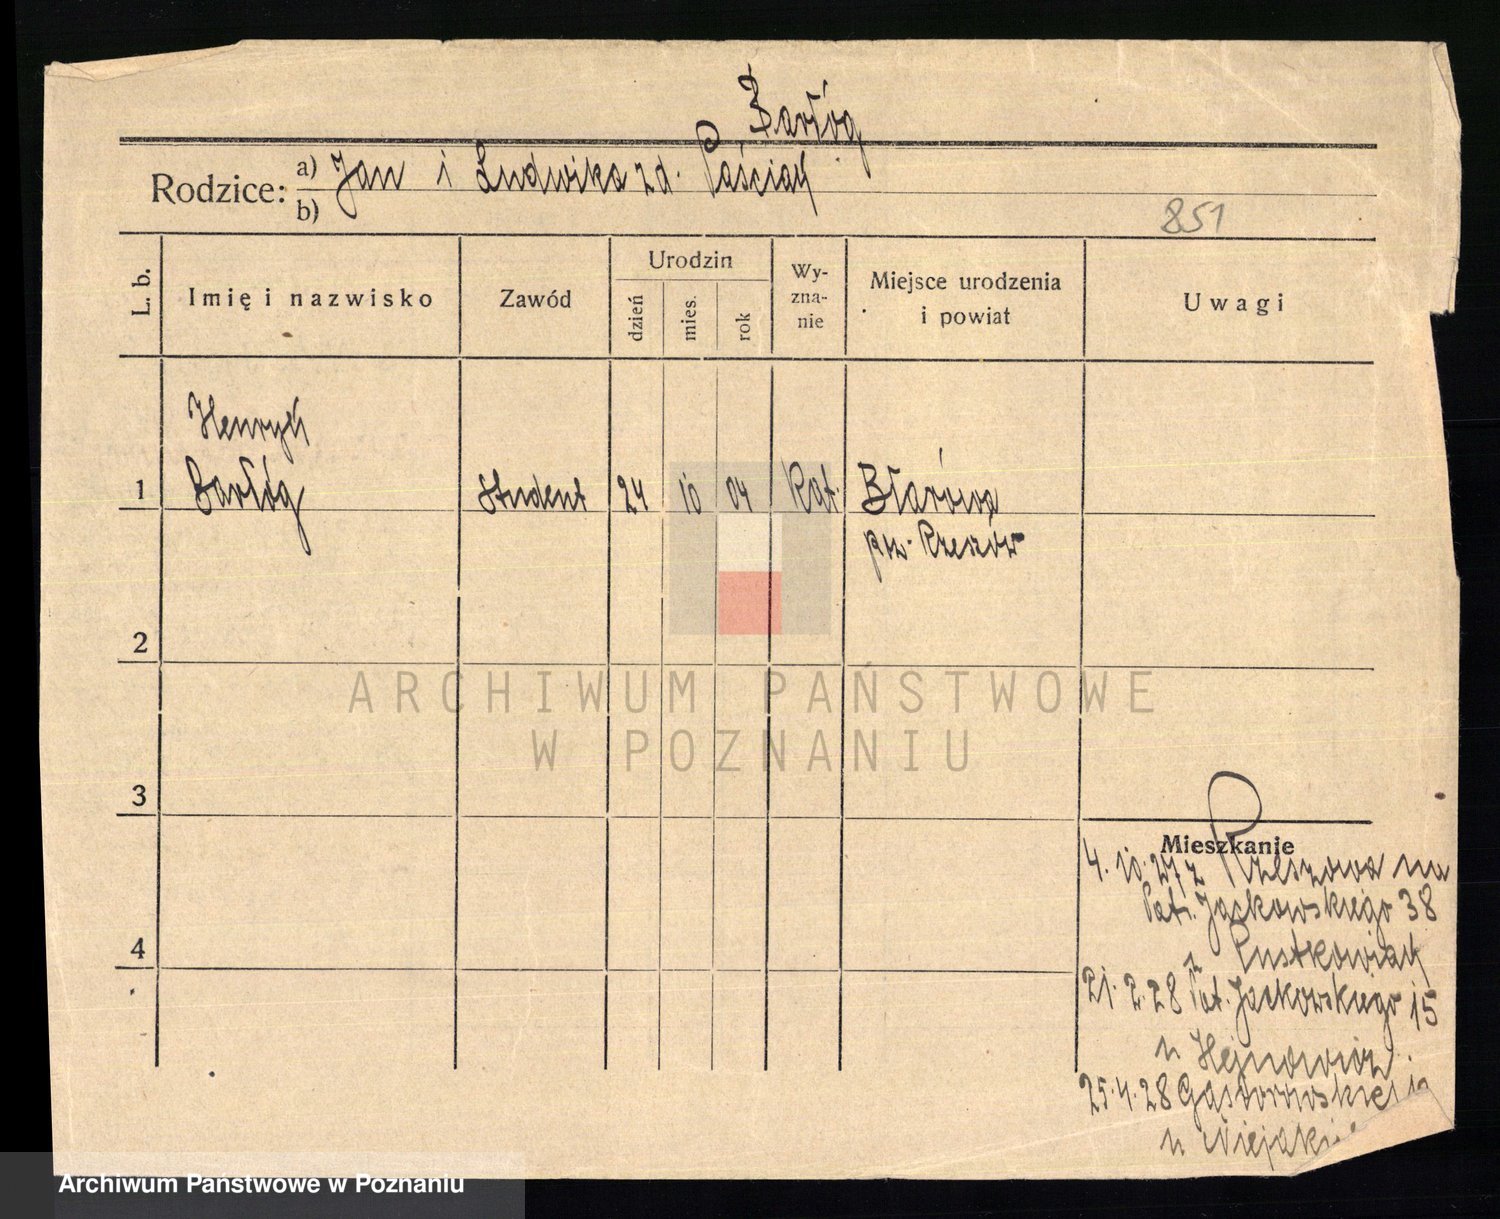 Barłóg
Rodzice: a) Jan i Ludwika zd. Paściak
b)
851
L. b.
Imię i nazwisko
Zawód
Urodzin
dzień
mies.
rok
Wy-
zna-
nie
Miejsce urodzenia
i powiat
Uwagi
Henryk
1 Barłóg Student 24 10 04 Kat. Błarowa
pow. Rzeszów
2
ARCHIWUM PAŃSTWOWE
W POZNANIU
3
Mieszkanie
4. 10. 27 z Rzeszowa na
Pat. Jackowskiego 38
u Pustkowiak
4
21. 2. 28 Pat. Jackowskiego 15
u Hejnowicz
25. 4. 28 Gąsiorowskich
u
Archiwum Państwowe w Poznaniu